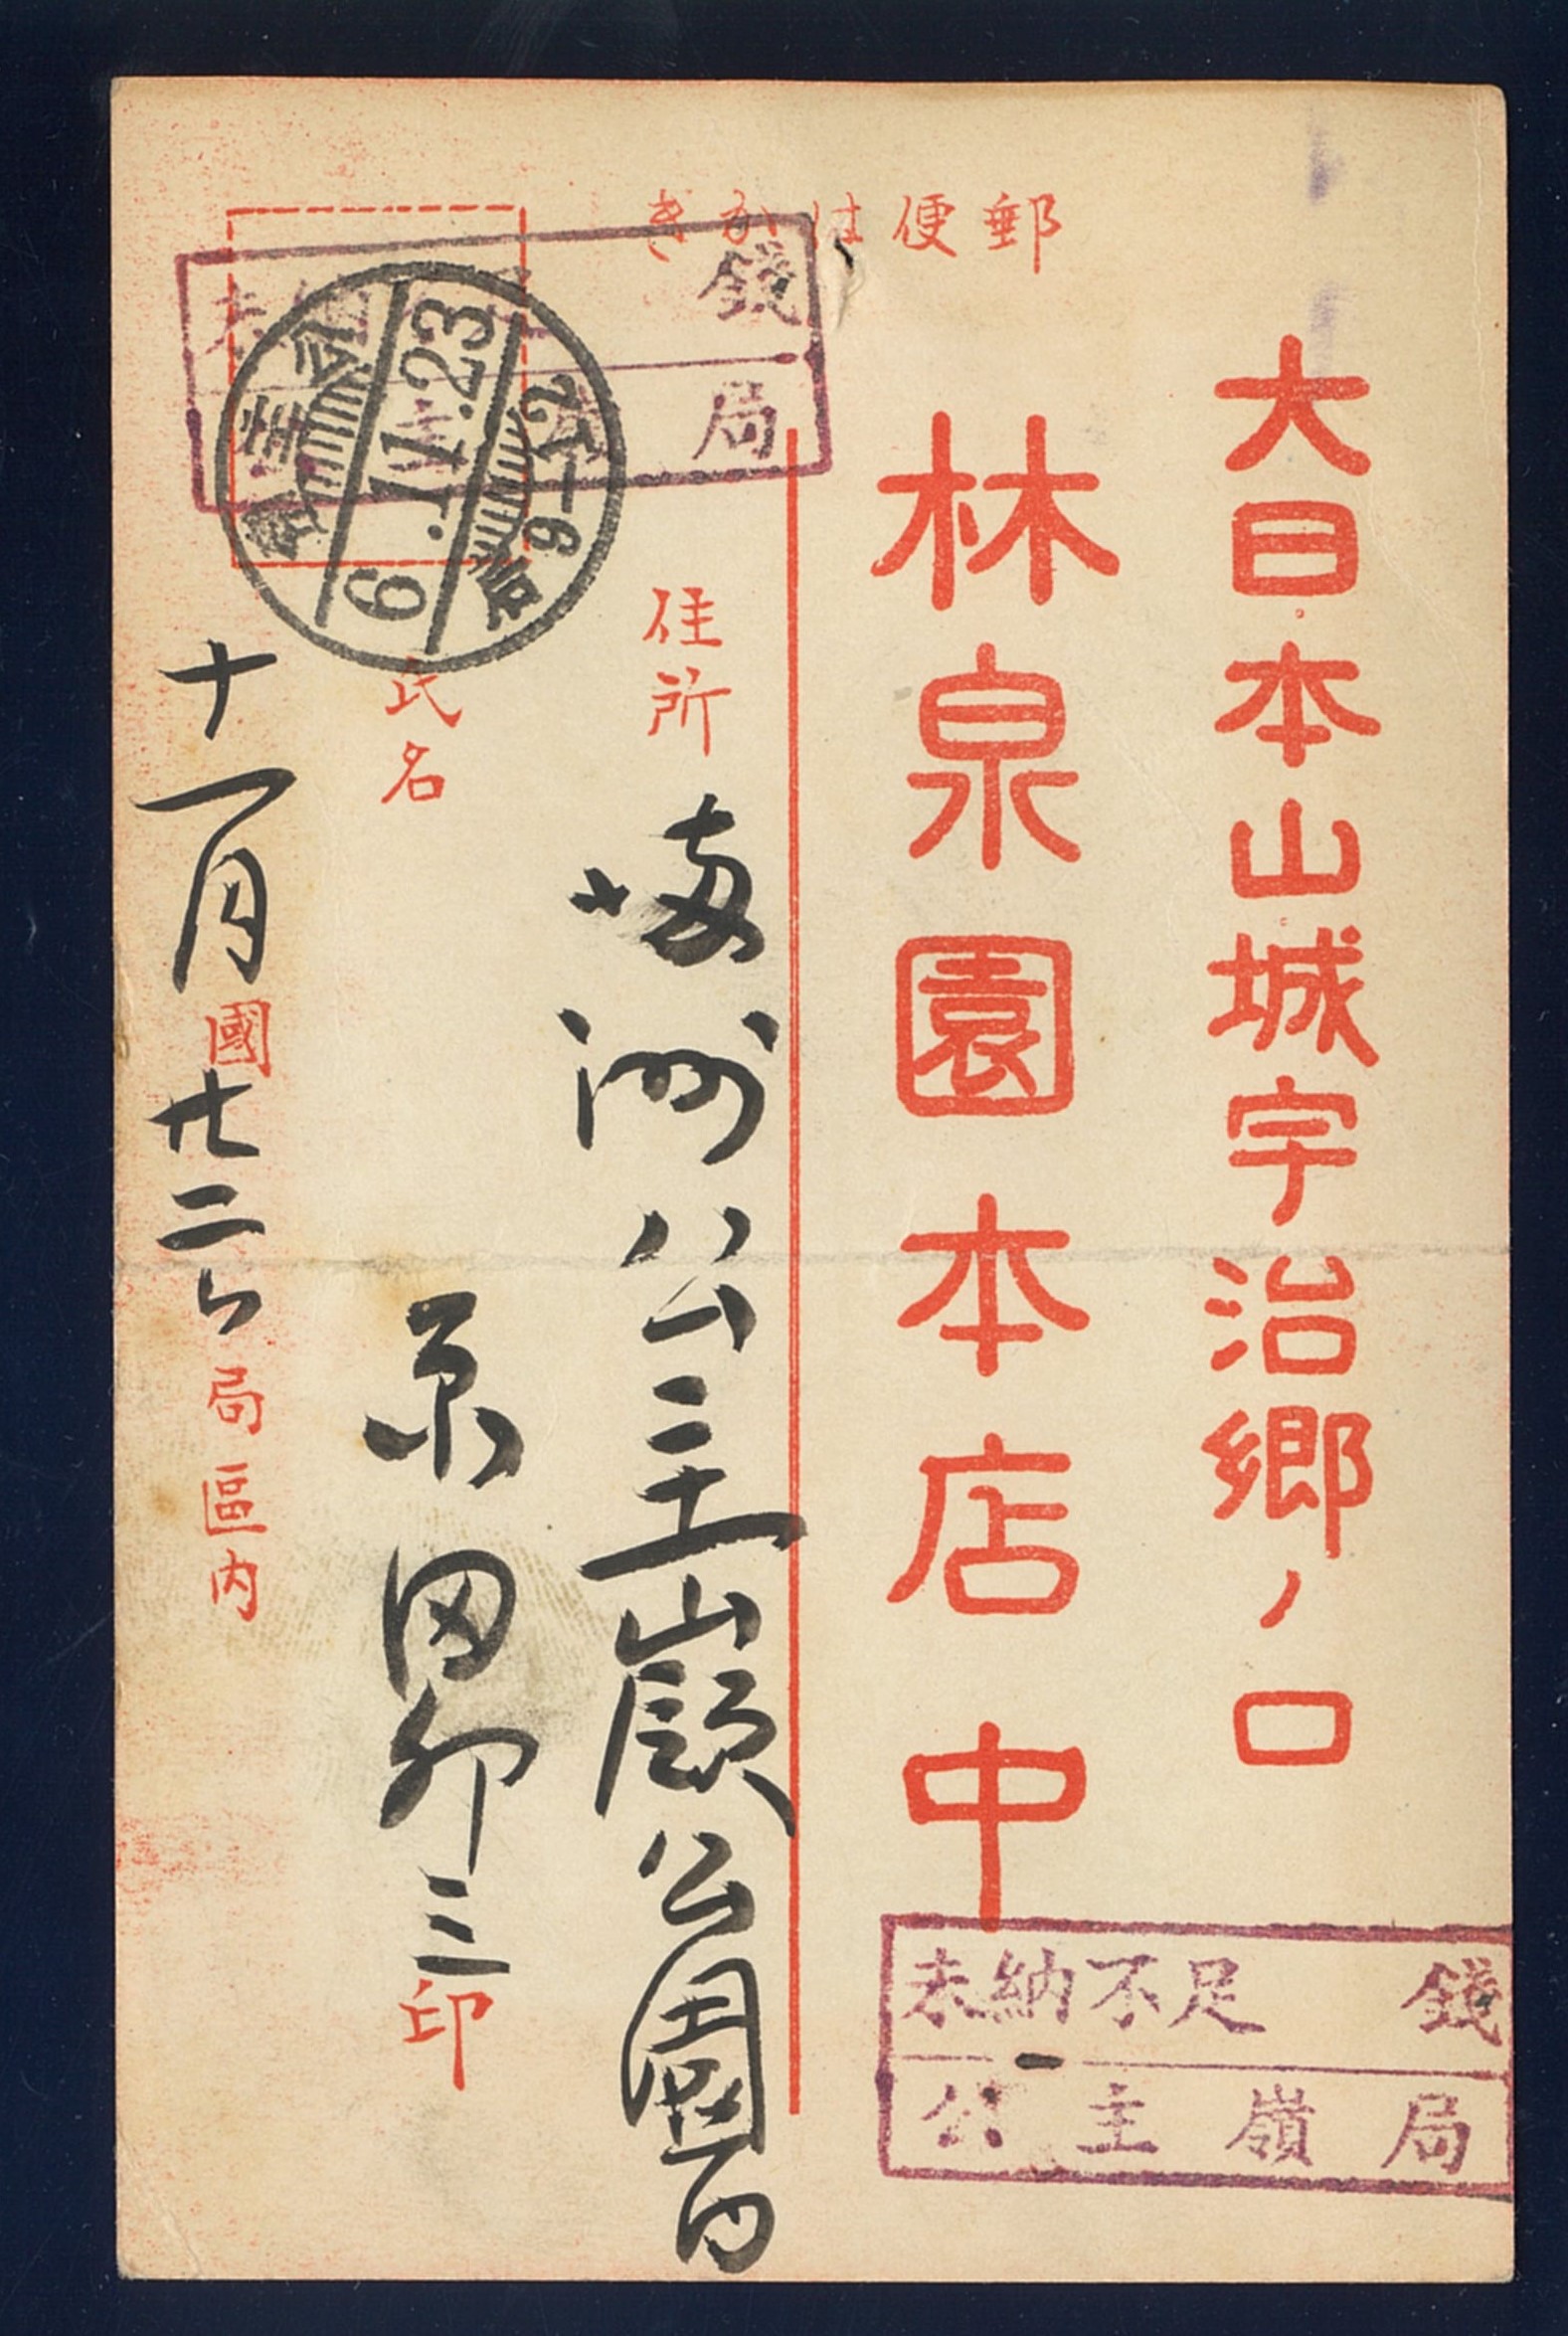 郵便はかき
大日本山城宇治郷ノ口
林泉園本店中
住所
滿洲公主嶺公園
氏名
田卯三
印
十一月廿二日
國 局區内
錢
局
公主嶺
6.11.23
前9-12
未納不足 錢
公主嶺局